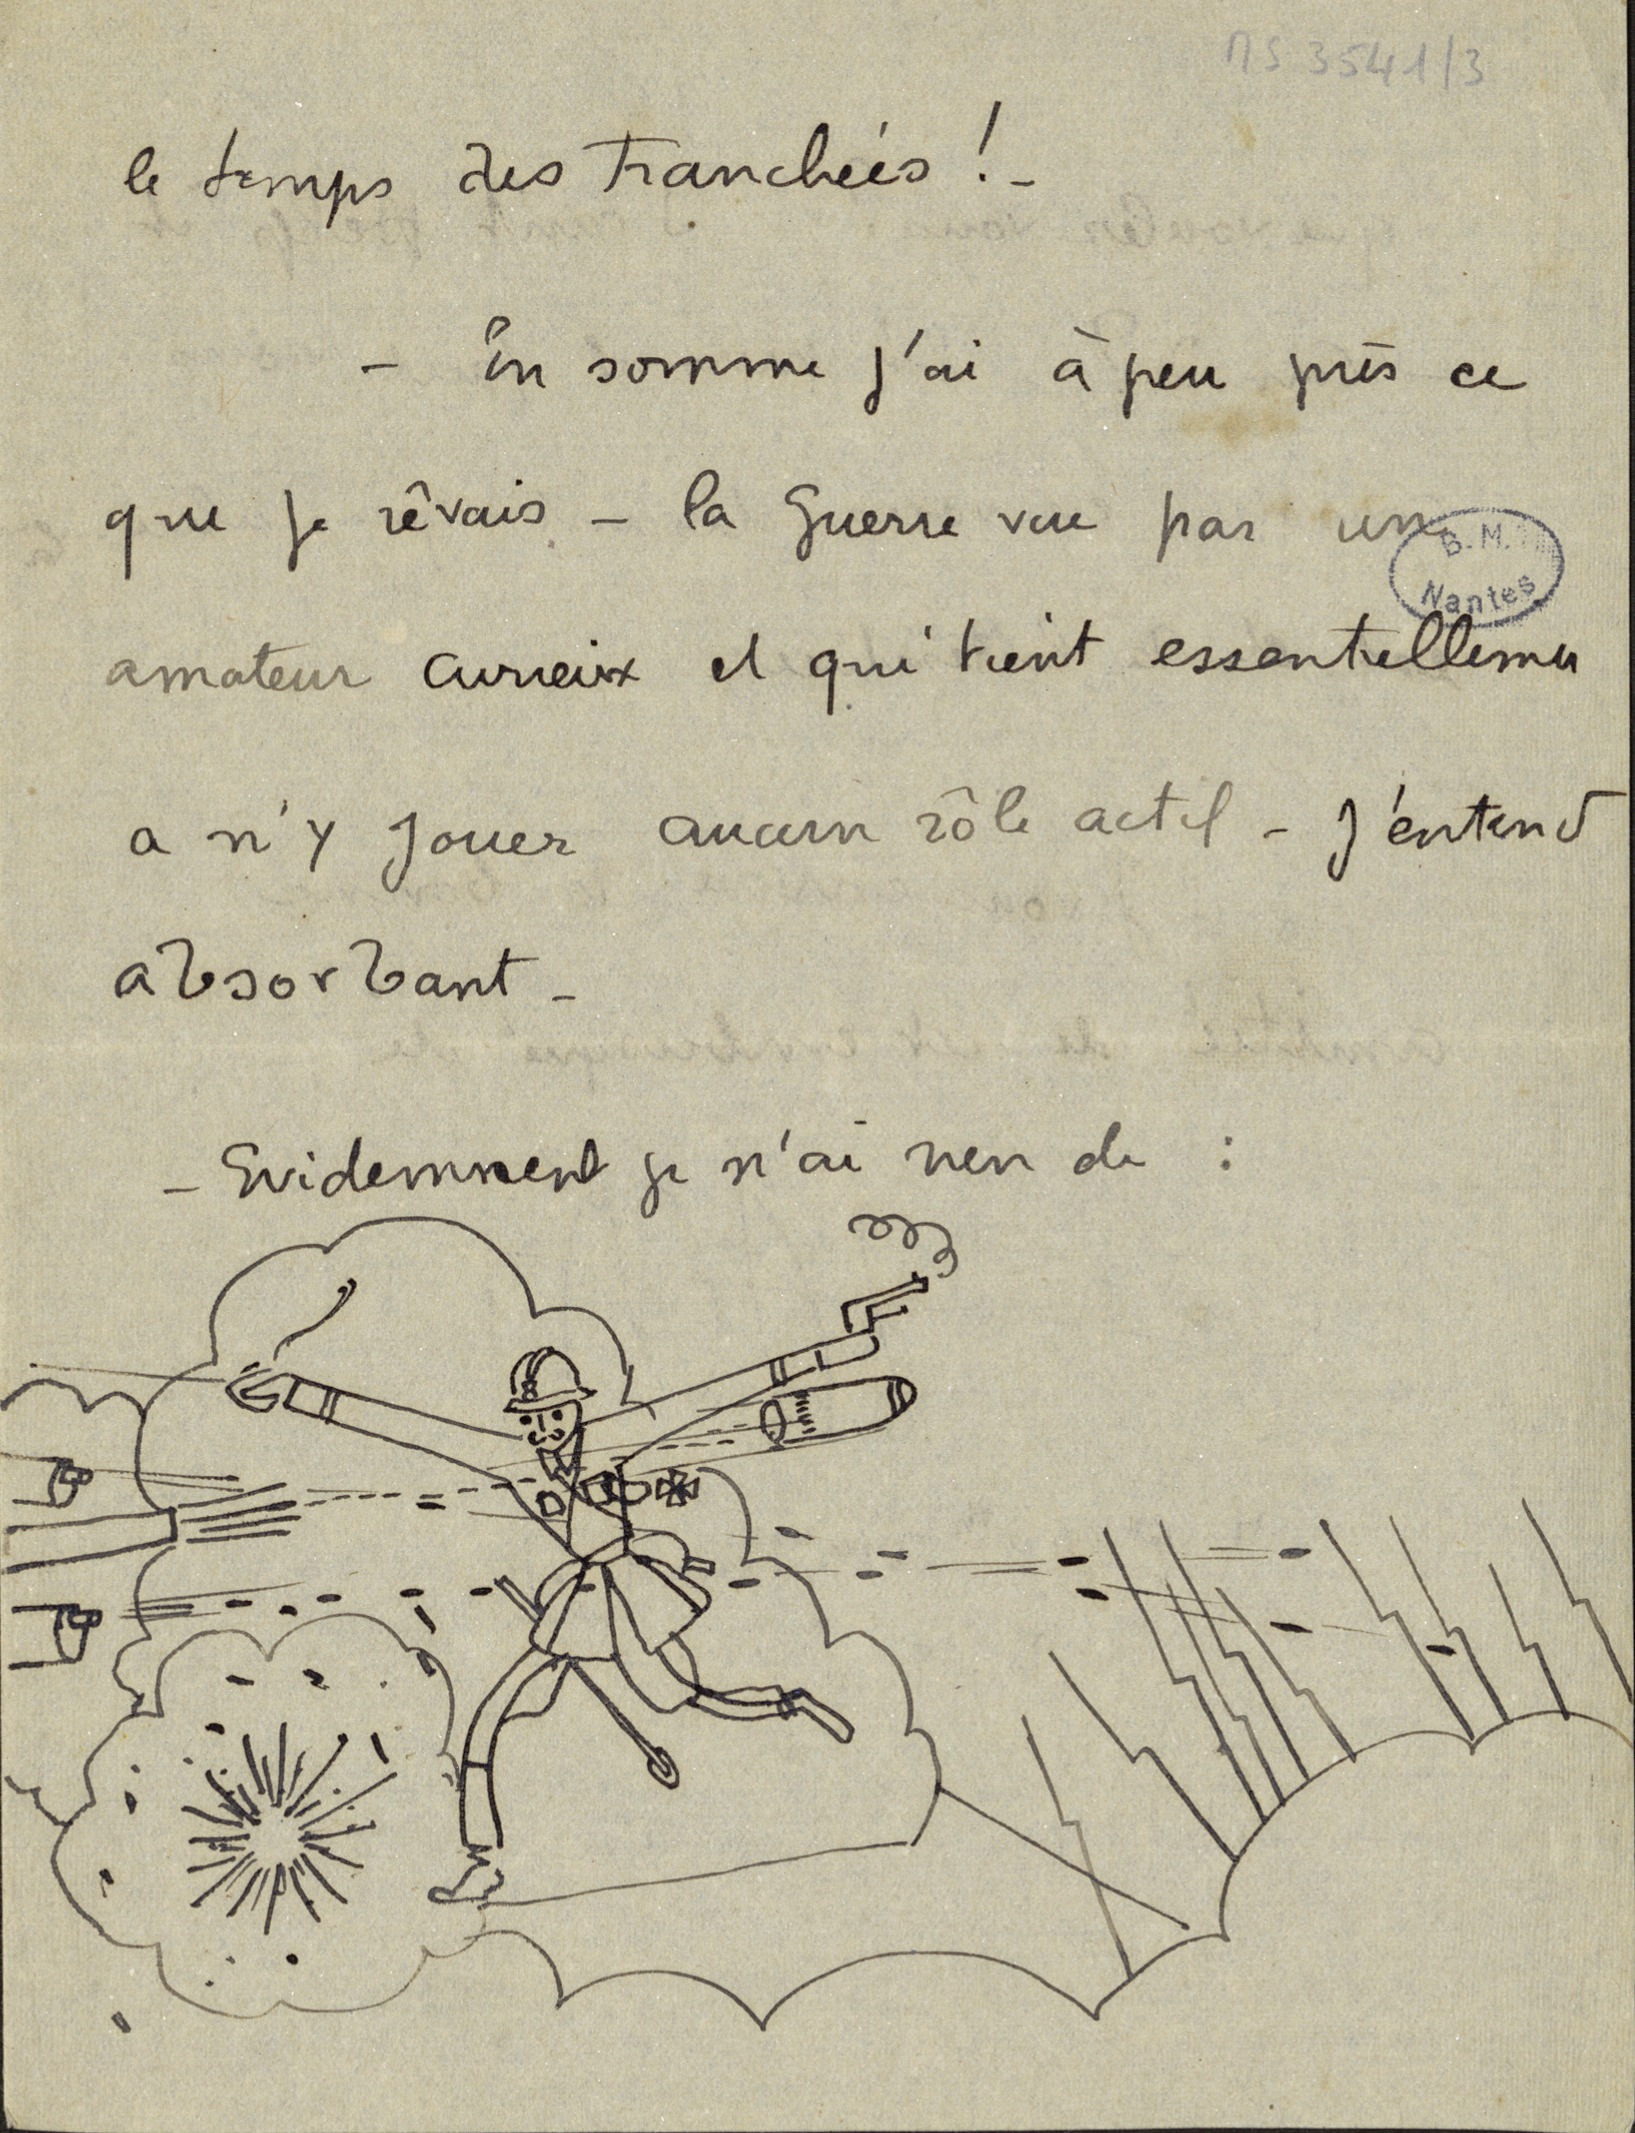 MS 3541/3
le temps des Tranchées ! -
- En somme j'ai à peu près ce
que je rêvais - la guerre vue par un
B. M.
Nantes
amateur curieux et qui tient essentiellement
a n'y jouer aucun rôle actif - J'entend
absorbant -
- Evidemment je n'ai rien de :